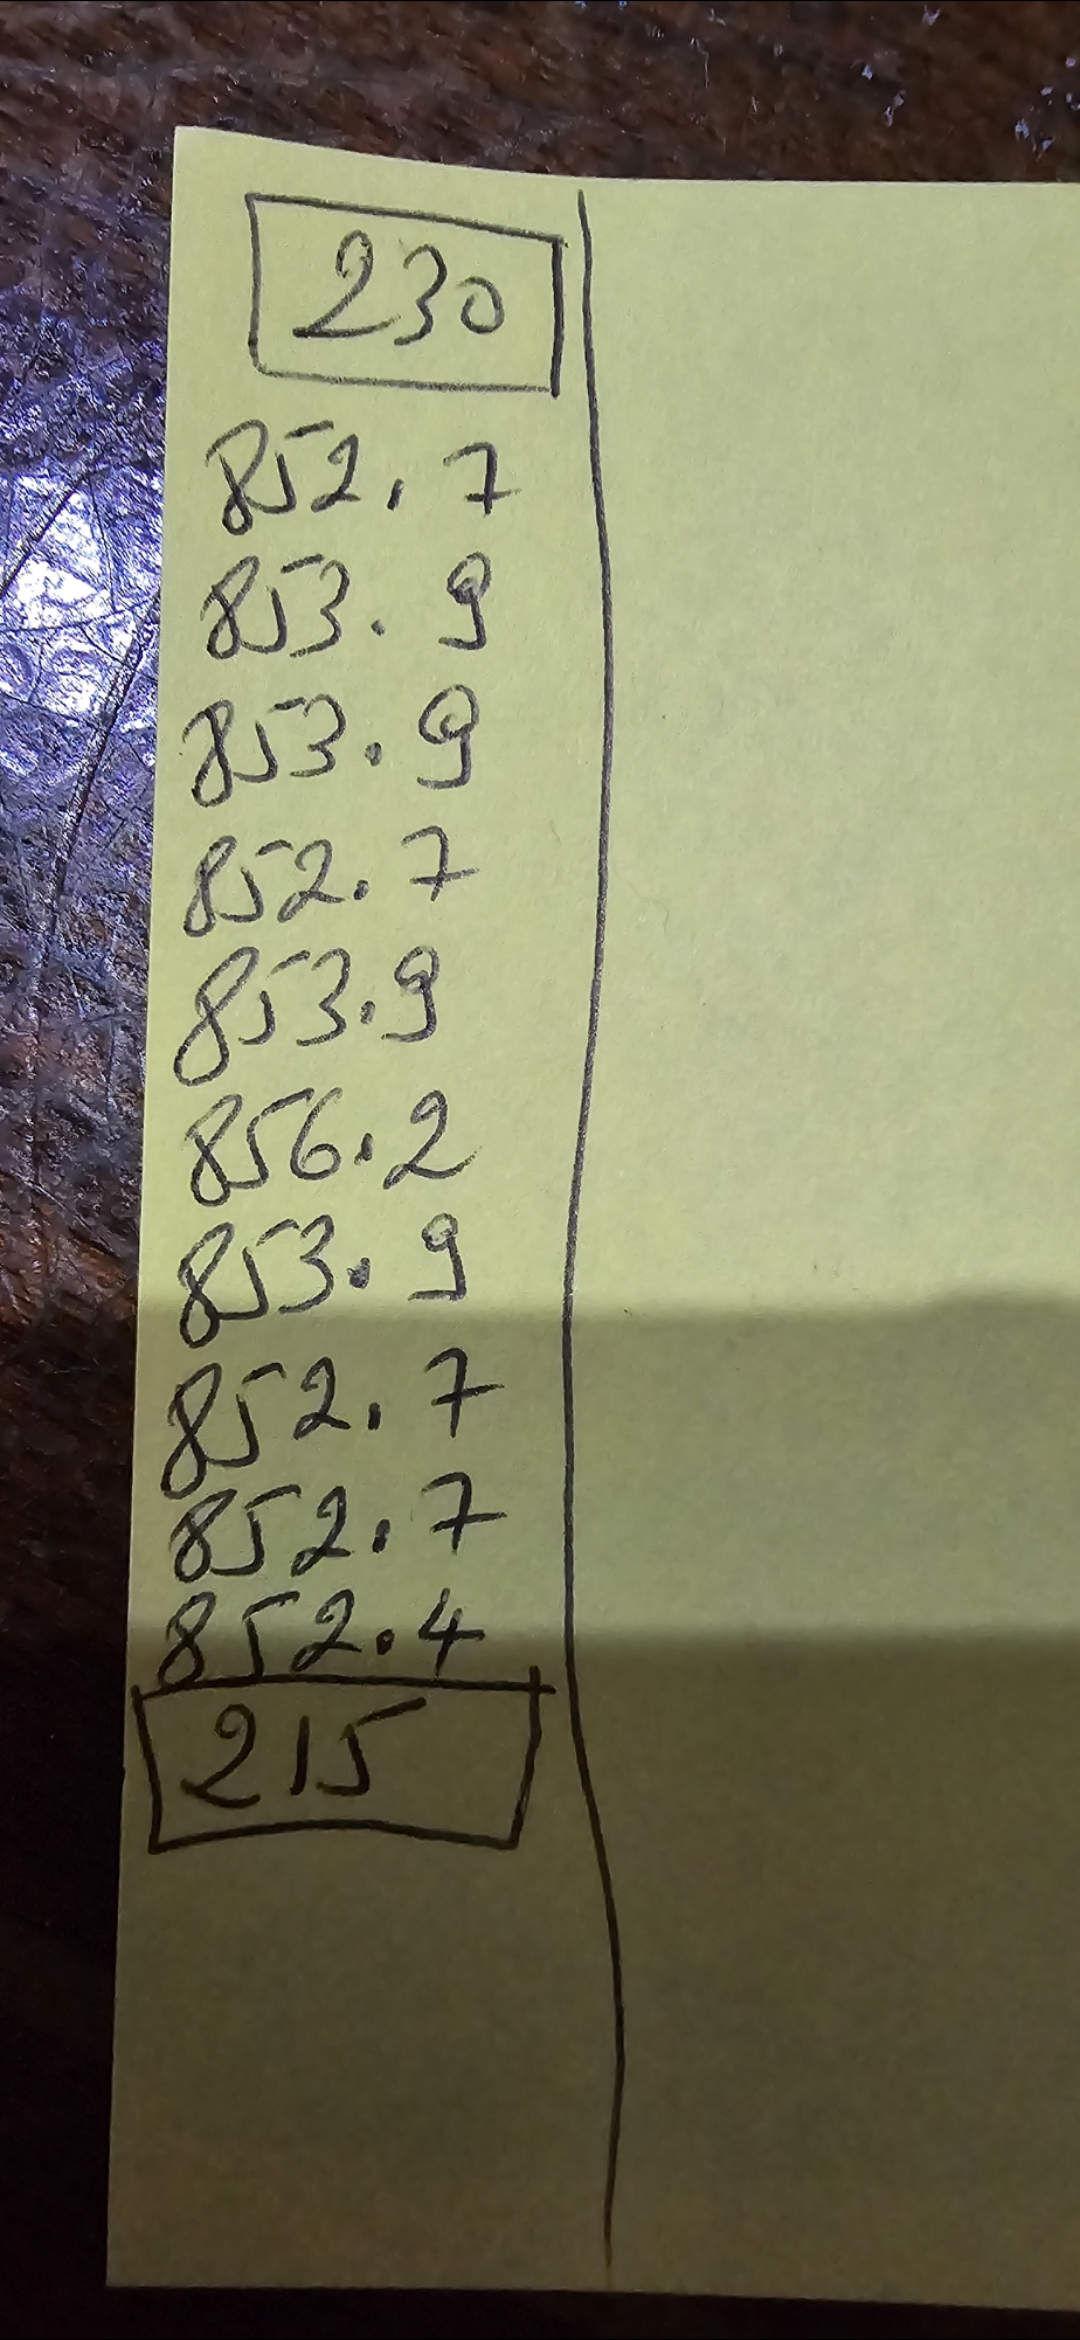 230
852.7
853.9
853.9
852.7
853.9
856.2
853.9
852.7
852.7
852.4
215